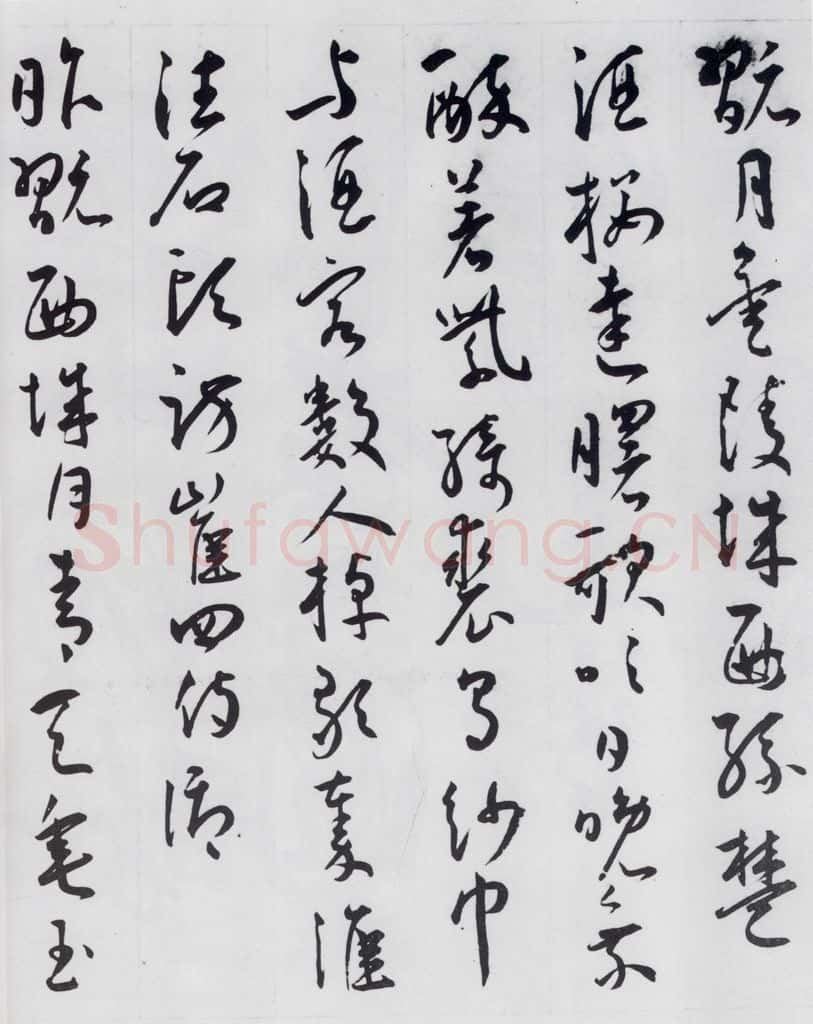 翫月金陵城西孫楚
酒樓達曙歌吹日晚乘
醉著紫綺裘烏紗巾
与酒客數人棹歌秦淮
往石頭訪崔四侍御
昨翫西城月青天垂玉
Shufawang.CN